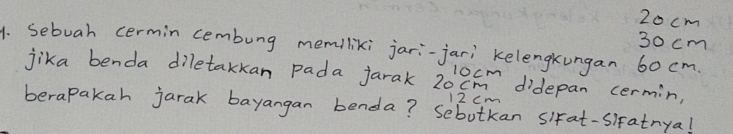 20 cm
30 cm
1. Sebuah cermin cembung memiliki jari-jari kelengkungan 60 cm.
jika benda diletakkan pada jarak 20 cm didepan cermin,
10 cm
12 cm
berapakah jarak bayangan benda? Sebutkan sifat-sifatnya!